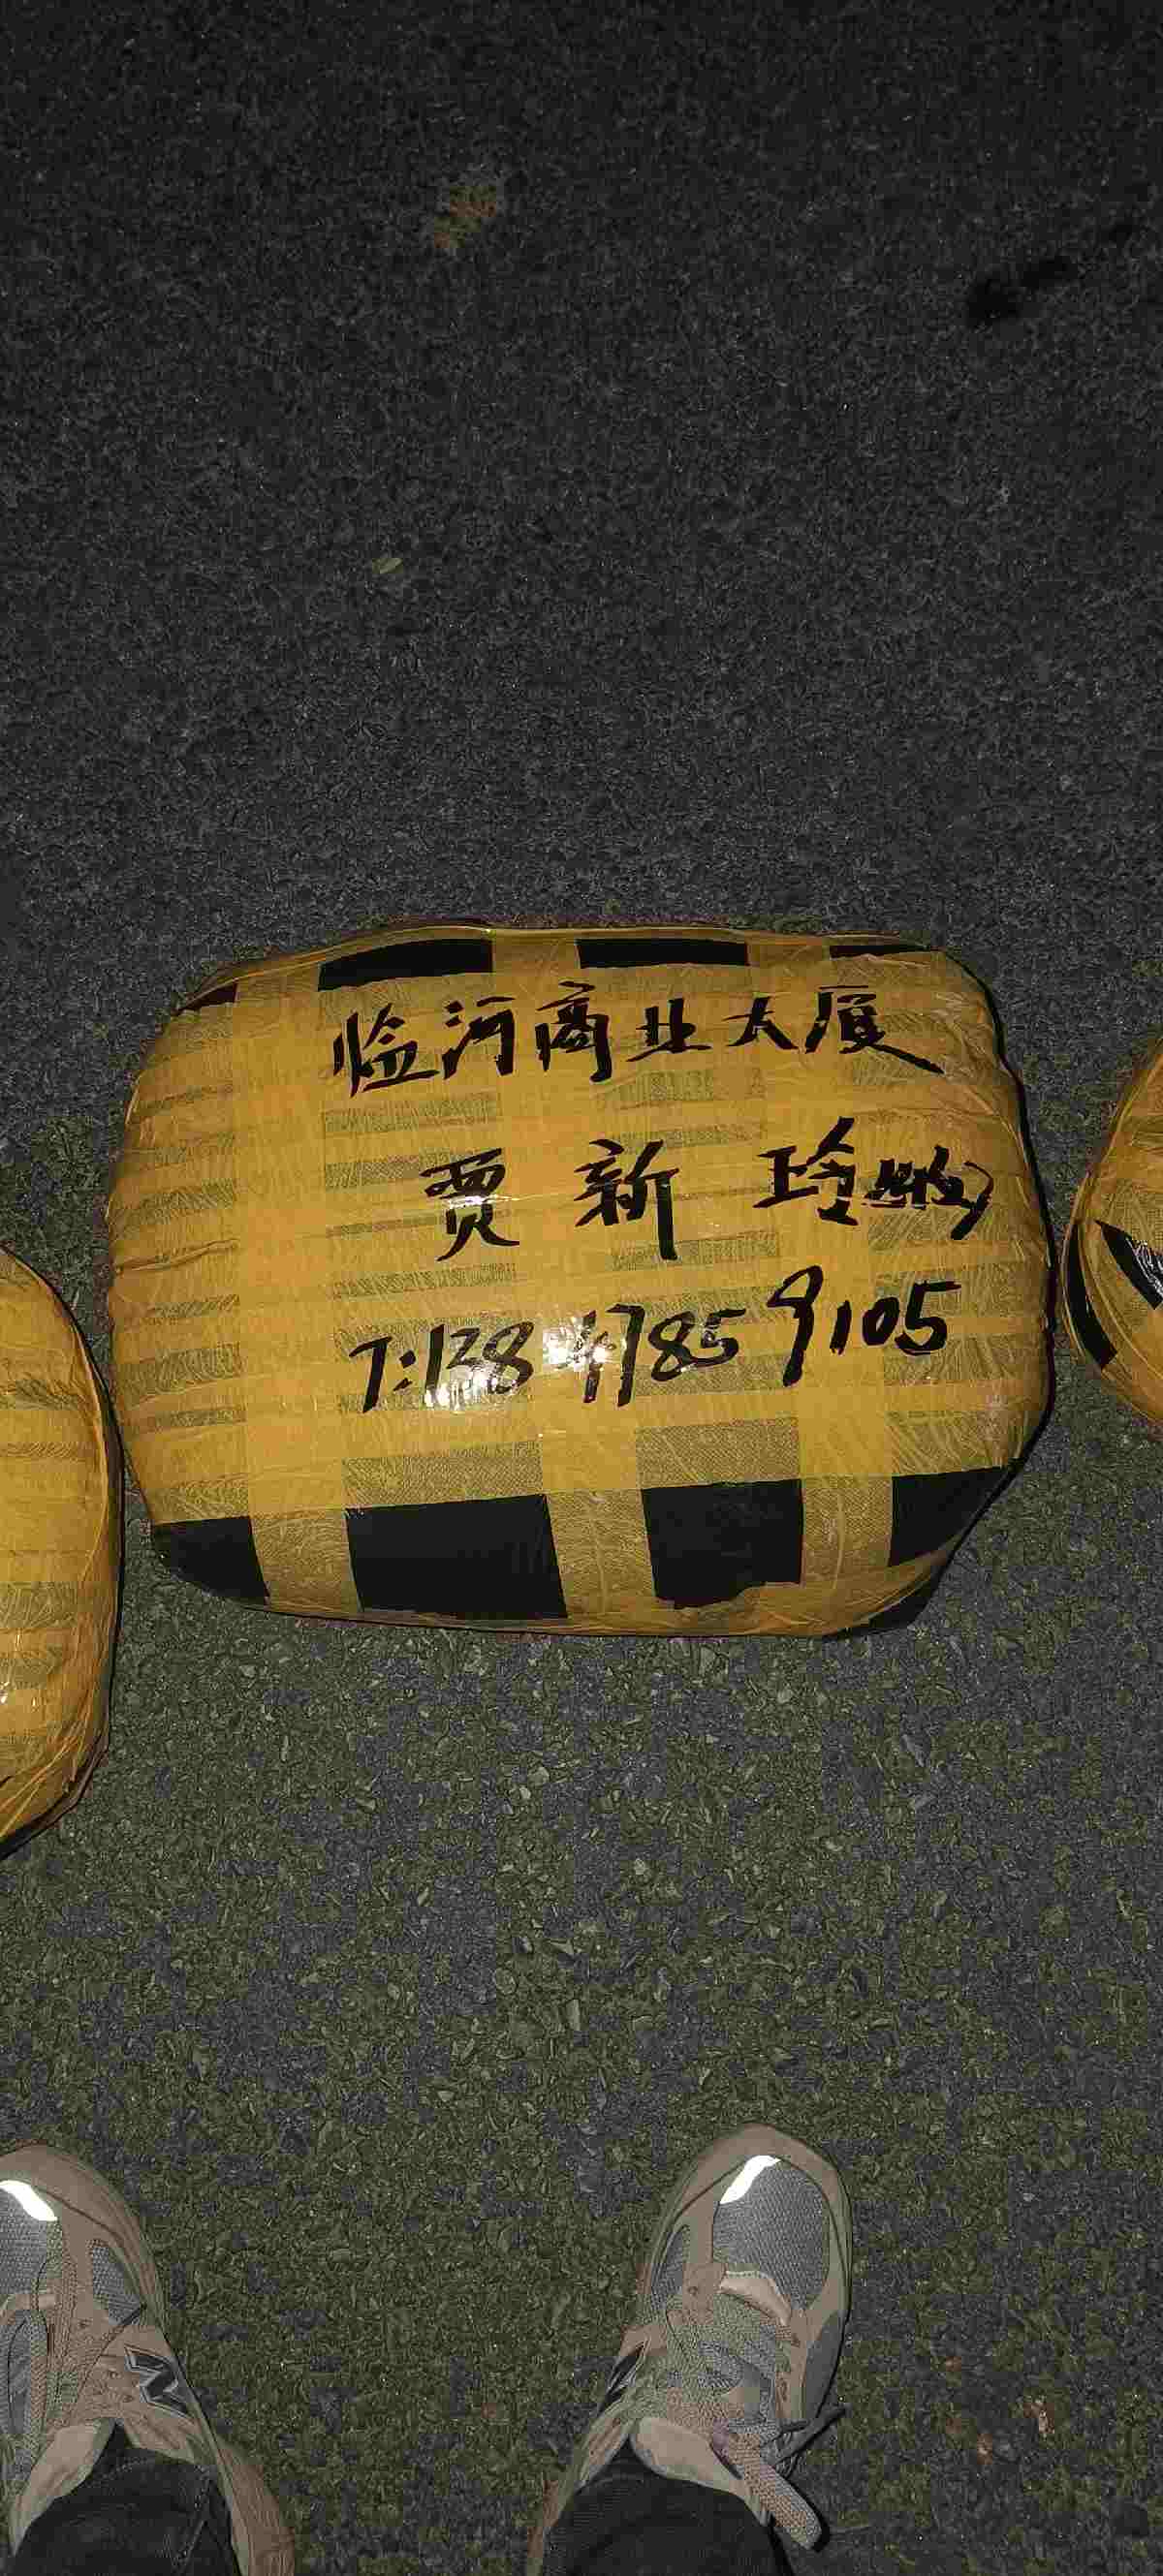 临河商业大厦
贾新玲
T:138 4785 9105